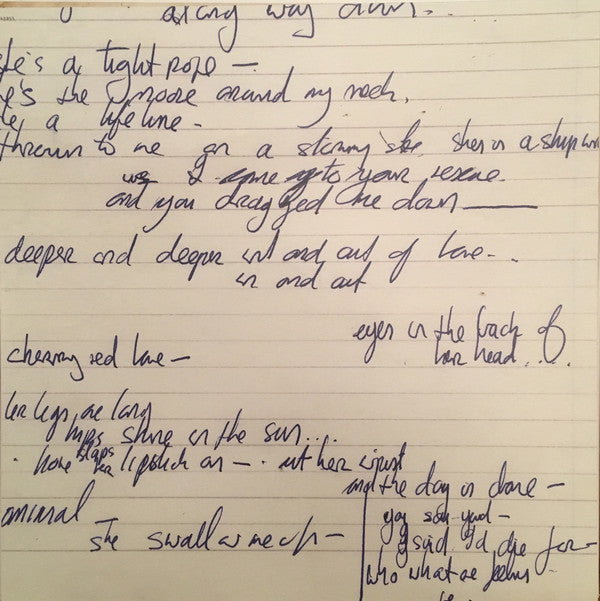 a long way down.
she's a tight rope —
she's the noose around my neck,
a life line -
thrown to me on a stormy she's a shipw
I came to your rescue
and you dragged me down —
deeper and deeper in and out of love - .
in and out
eyes in the back of
her head ...
cherry red love —
her legs are long
lips shine in the sun...
slaps her lipstick on — .
and the day is done —
animal —
you said —
she swallows me up —
I said I'd die for —
who what